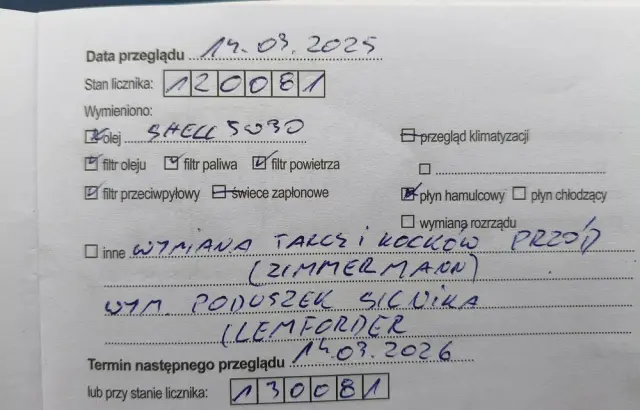 Data przeglądu 14.03.2025
Stan licznika: 120081
Wymieniono:
olej SHELL 5W30
przegląd klimatyzacji
filtr oleju filtr paliwa filtr powietrza
filtr przeciwpyłowy świece zapłonowe
płyn hamulcowy płyn chłodzący
wymiana rozrządu
inne WYMIANA TARCZ I KLOCKÓW PRZÓD
(ZIMMERMANN)
WYM. PODUSZEK SILNIKA
(LEMFORDER
Termin następnego przeglądu 14.03.2026
lub przy stanie licznika: 130081